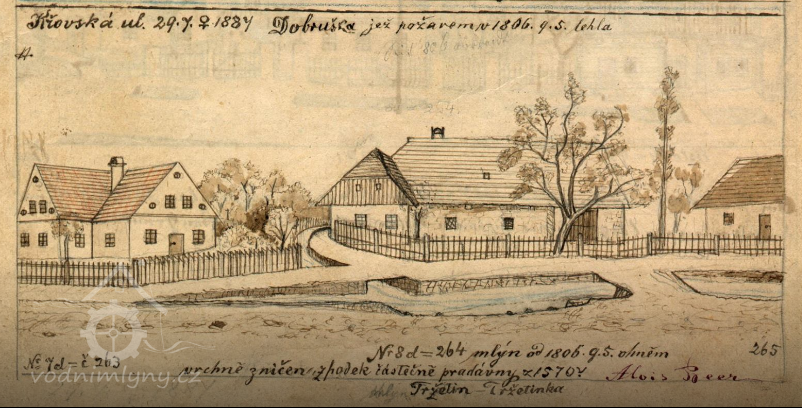 Křovská ul. 29.7. ♀ 1887 Dobruška jež požárem v 1806. 9. 5. lehla
No 7d = č. 263
Nr 8d = 264 mlýn od 1806. 9. 5. ohněm
265
vrchně zničen, spodek částečně pradávný z 1570?
Alois Beer
Tržetin - Tržetinka
vodnimlyny.cz